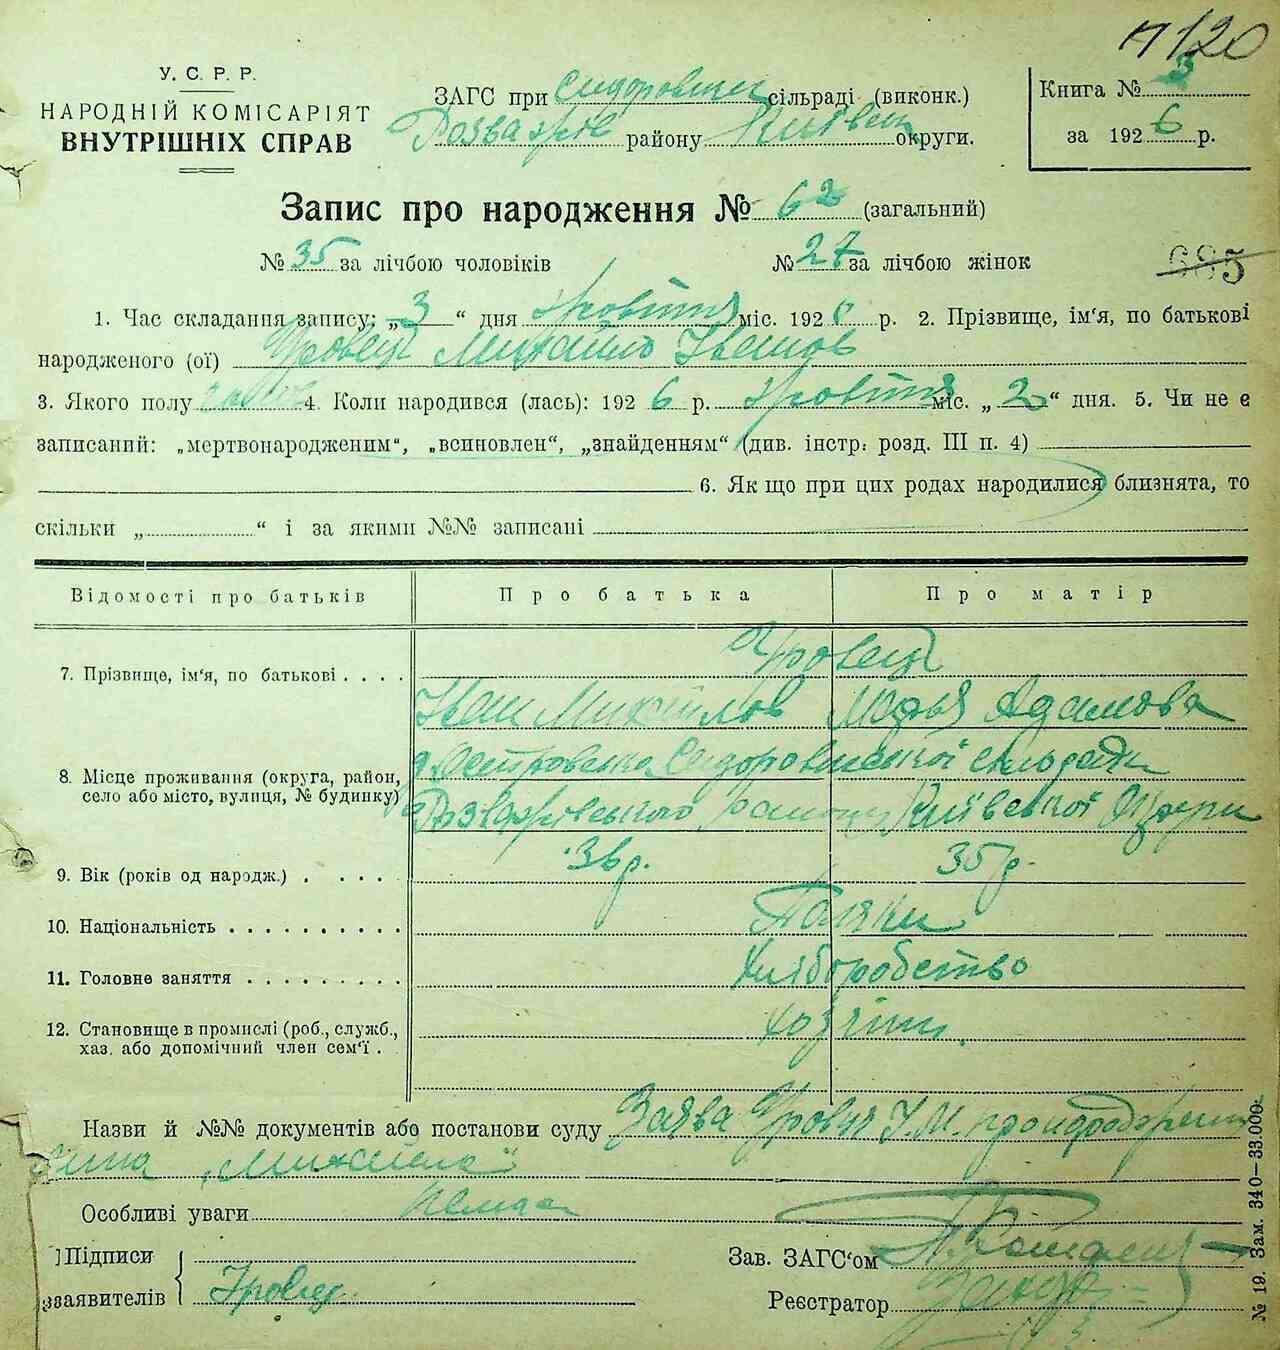 П/20
У. С. Р. Р.
НАРОДНІЙ КОМІСАРІЯТ
ВНУТРІШНІХ СПРАВ
ЗАГС при Сидоровській сільраді (виконк.)
Розважів району Київськ округи.
Книга № 3
за 1926 р.
Запис про народження № 62 (загальний)
№ 35 за лічбою чоловіків № 27 за лічбою жінок
685
1. Час складання запису: „3“ дня Жровітня міс. 1926 р. 2. Прізвище, ім'я, по батькові
народженого (ої) Уровець Михайло Іванов
3. Якого полу 4. Коли народився (лась): 1926 р. Жровітня міс. „2“ дня. 5. Чи не є
записаний: „мертвонародженим“, „всиновлен“, „знайденням“ (див. інстр. розд. III п. 4)
6. Як що при цих родах народилися близнята, то
скільки „ “ і за якими №№ записані
Відомості про батьків Про батька Про матір
7. Прізвище, ім'я, по батькові . . . . Уровець
Іван Михайлов Мар'я Адамова
8. Місце проживання (округа, район,
село або місто, вулиця, № будинку)
д. Островська Сидоровської сільради
Розважівського району Київської Округи
9. Вік (років од народж.) . . . . . 36 р. 35 р.
10. Національність . . . . . . . . . . Поляки
11. Головне заняття . . . . . . . . . Хліборобство
12. Становище в промислі (роб., служб.,
хаз. або допомічний член сем'ї . . Хозяїни.
Назви й №№ документів або постанови суду Заява Уровця І. М. про народження
сина „Михайла“
Особливі уваги Немає
Підписи
заявителів Уровец
Зав. ЗАГС'ом
Реєстратор
№ 19. Зам. 340—33.000.